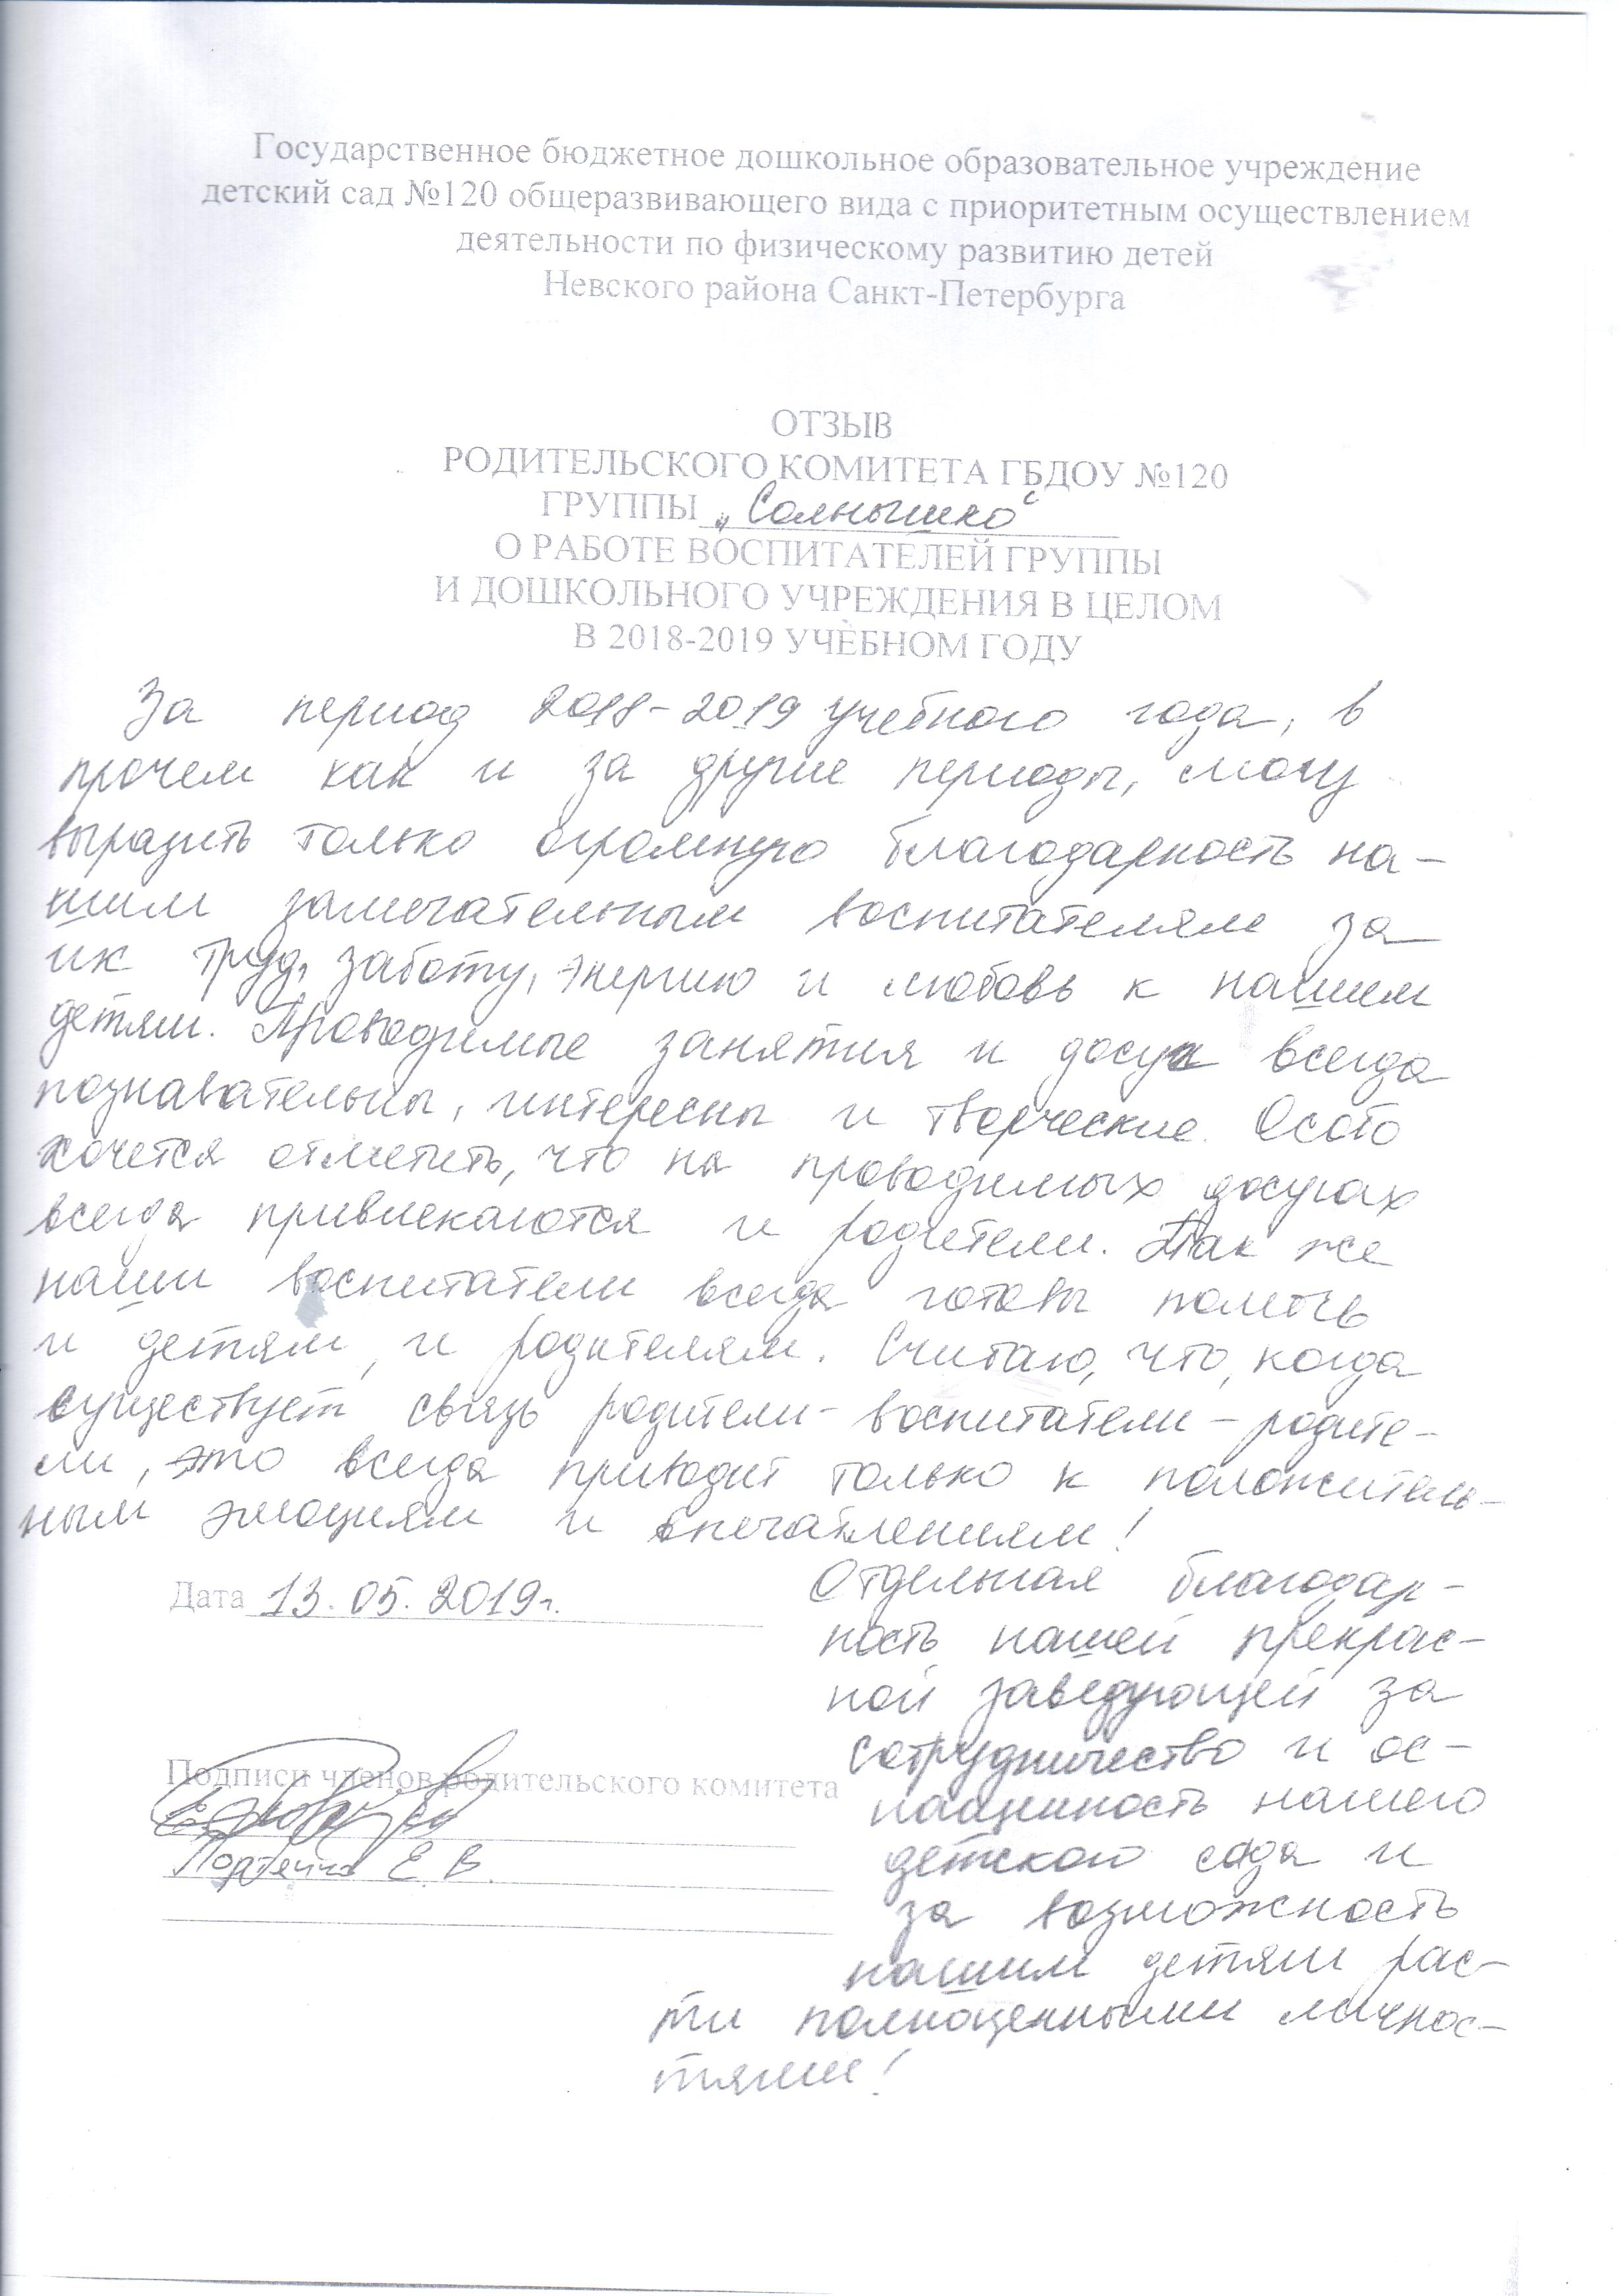 Государственное бюджетное дошкольное образовательное учреждение
детский сад №120 общеразвивающего вида с приоритетным осуществлением
деятельности по физическому развитию детей
Невского района Санкт-Петербурга
ОТЗЫВ
РОДИТЕЛЬСКОГО КОМИТЕТА ГБДОУ №120
ГРУППЫ „Солнышко“
О РАБОТЕ ВОСПИТАТЕЛЕЙ ГРУППЫ
И ДОШКОЛЬНОГО УЧРЕЖДЕНИЯ В ЦЕЛОМ
В 2018-2019 УЧЕБНОМ ГОДУ
За период 2018-2019 учебного года, в
прочем как и за другие периоды, могу
выразить только огромную благодарность на-
шим замечательным воспитателям за
их труд, заботу, энергию и любовь к нашим
детям. Проводимые занятия и досуги всегда
познавательны, интересны и творческие. Особо
хочется отметить, что на проводимых досугах
всегда привлекаются и родители. Так же
наши воспитатели всегда готовы помочь
и детям, и родителям. Считаю, что, когда
существует связь родители-воспитатели-родите-
ли, это всегда приводит только к положитель-
ным эмоциям и впечатлениям!
Дата 13.05.2019г.
Отдельная благодар-
ность нашей прекрас-
ной заведующей за
сотрудничество и ос-
нащенность нашего
детского сада и
за возможность
нашим детям рас-
ти полноценными личнос-
тями!
Подписи членов родительского комитета
Е. В.